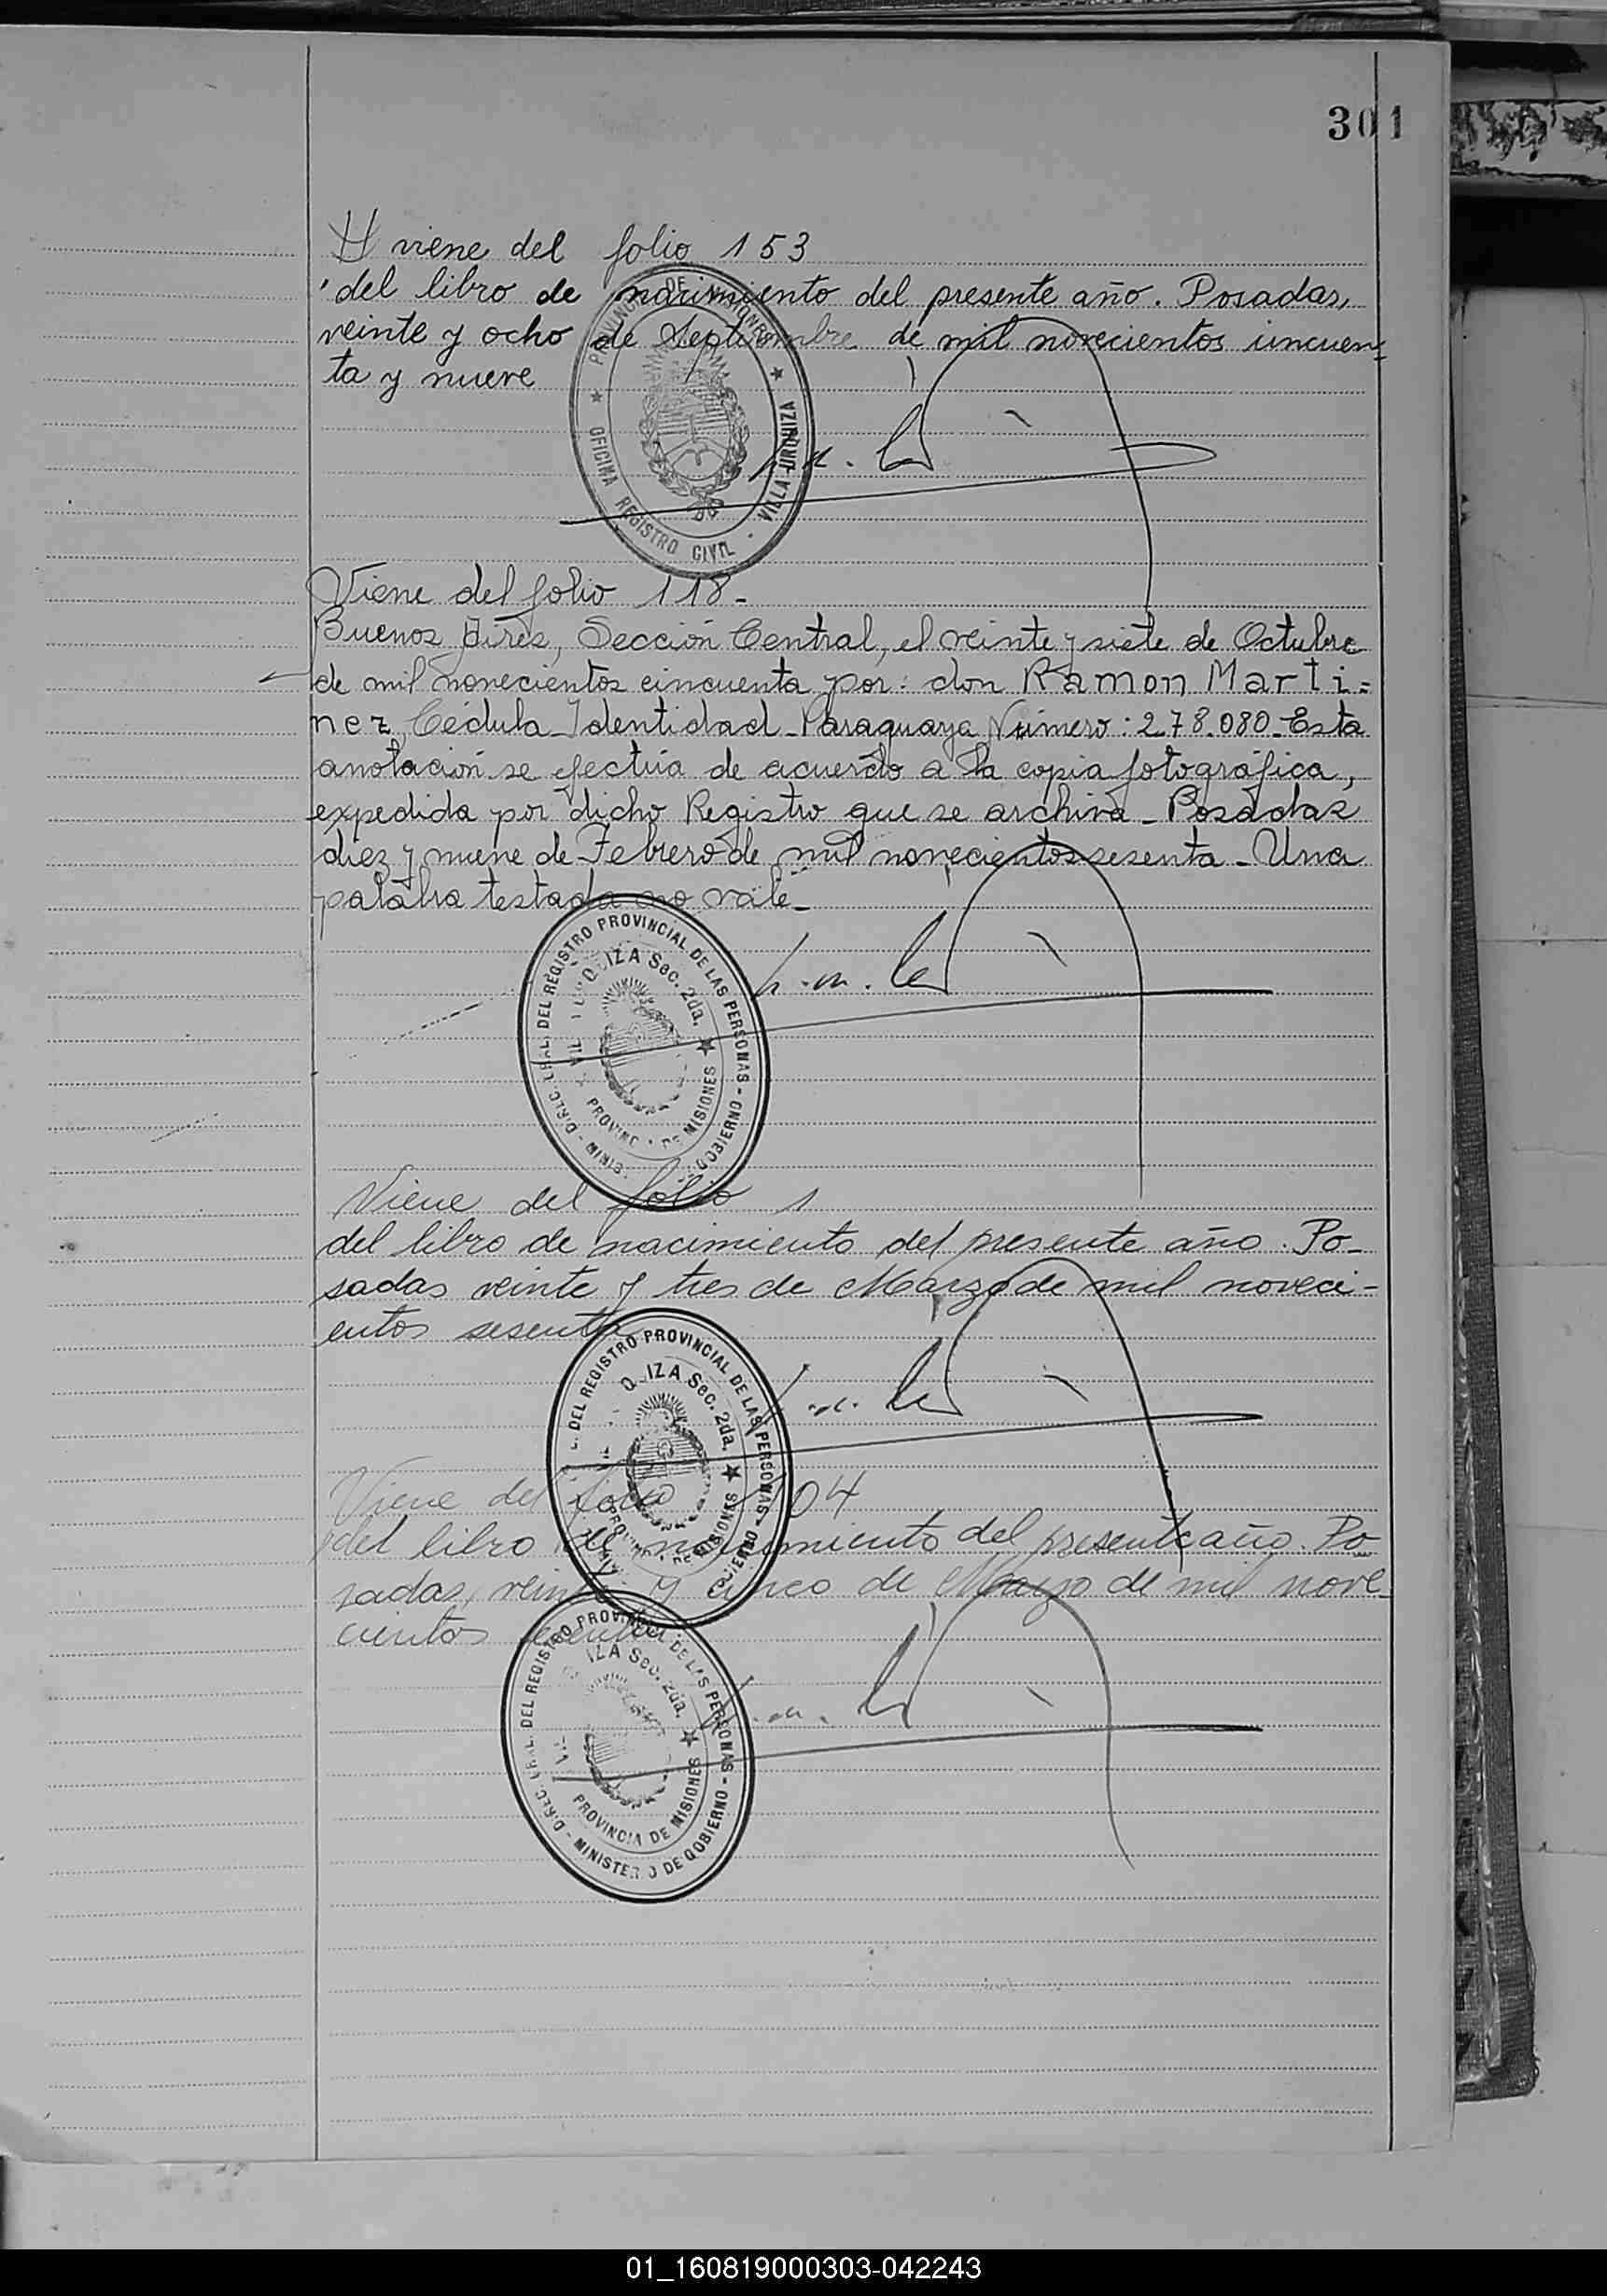 301
viene del folio 153
del libro de nacimiento del presente año. Posadas,
veinte y ocho de Septiembre de mil novecientos cincuen-
ta y nueve
PROVINCIA DE MISIONES
OFICINA REGISTRO CIVIL · VILLA URQUIZA
Viene del folio 118.-
Buenos Aires, Sección Central, el veinte y siete de Octubre
de mil novecientos cincuenta por: don Ramon Marti=
nez, Cédula Identidad Paraguaya Número: 278.080. Esta
anotación se efectúa de acuerdo a la copia fotográfica,
expedida por dicho Registro que se archiva - Posadas
diez y nueve de Febrero de mil novecientos sesenta - Una
palabra testada no vale -
DEL REGISTRO PROVINCIAL DE LAS PERSONAS - GOBIERNO
IZA Sec. 2da.
DE MISIONES
Viene del folio 1
del libro de nacimiento del presente año. Po-
sadas veinte y tres de Marzo de mil noveci-
entos sesenta
DEL REGISTRO PROVINCIAL DE LAS PERSONAS
IZA Sec. 2da.
DE MISIONES
Viene del folio 104
del libro de nacimiento del presente año. Po
sadas, veinte y cinco de Marzo de mil nove-
cientos sesenta
DEL REGISTRO PROVINCIAL DE LAS PERSONAS - MINISTERIO DE GOBIERNO
IZA Sec. 2da.
PROVINCIA DE MISIONES
01_160819000303-042243